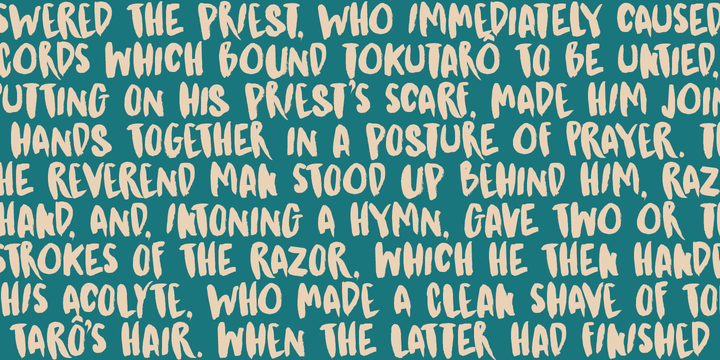 SWERED THE PRIEST, WHO IMMEDIATELY CAUSED
CORDS WHICH BOUND TOKUTARÔ TO BE UNTIED,
PUTTING ON HIS PRIEST'S SCARF, MADE HIM JOIN
HANDS TOGETHER IN A POSTURE OF PRAYER. T
HE REVEREND MAN STOOD UP BEHIND HIM, RAZ
HAND, AND, INTONING A HYMN, GAVE TWO OR T
STROKES OF THE RAZOR, WHICH HE THEN HANDE
HIS ACOLYTE, WHO MADE A CLEAN SHAVE OF TO
TARÔ'S HAIR. WHEN THE LATTER HAD FINISHED